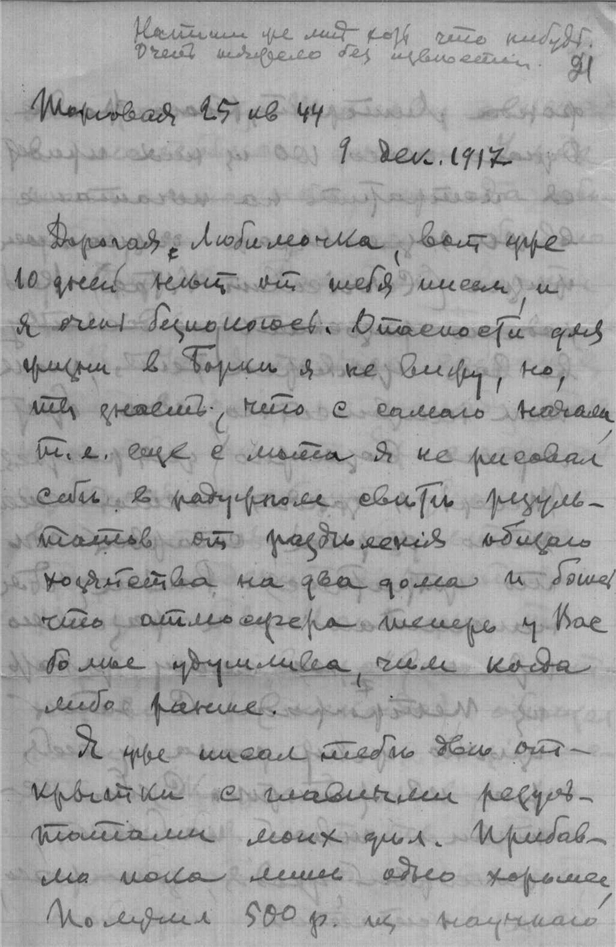 Напиши же мнѣ хоть что нибудь.
Очень тяжело без извѣстий.
21
Торговая 25 кв 44
9 Дек. 1917
Дорогая Любимочка, вот уже
10 дней нѣт от тебя писем, и
я очень безпокоюсь. Опасности для
жизни в Борки я не вижу, но,
ты знаешь, что с самаго начала,
т.е. еще с лѣта я не рисовал
себѣ в радужном свѣтѣ резуль-
татов от раздѣления общаго
хозяйства на два дома и боюсь
что атмосфера теперь у Вас
болѣе удушлива, чѣм когда
либо раньше.
Я уже писал тебѣ двѣ от-
крытки с главными резуль-
татами моих дѣл. Прибав-
лю пока лишь одно хорошее,
Получил 500 р. из научнаго